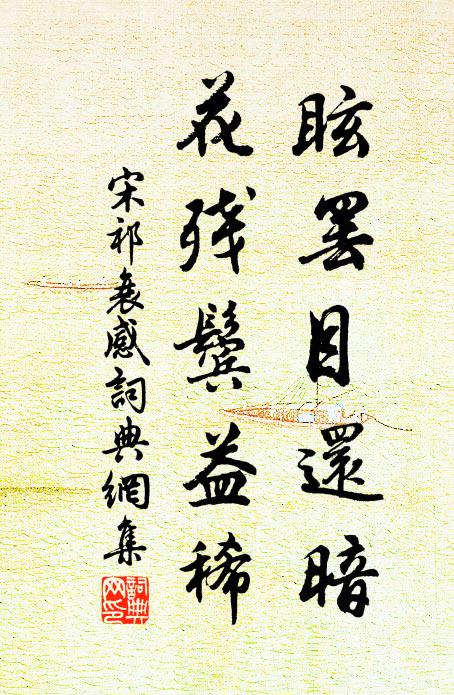 眩罢目還暗
花残鬓益稀
宋祁衰感詞典網集
詞典網印